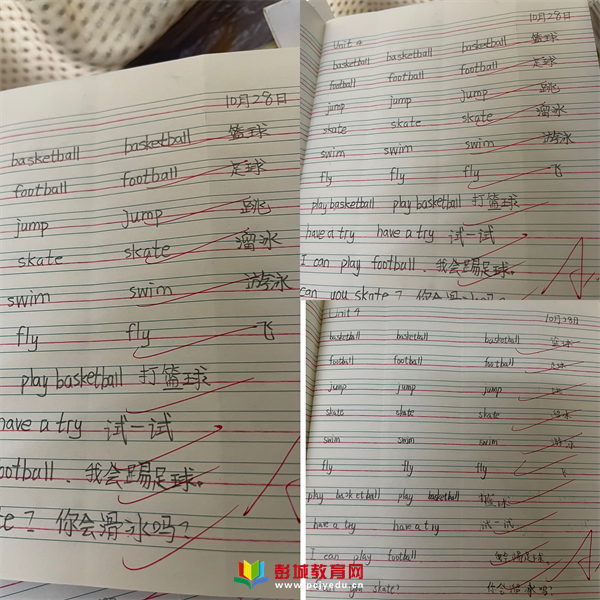 10月28日
basketball basketball 篮球
football football 足球
jump jump 跳
skate skate 溜冰
swim swim 游泳
fly fly 飞
play basketball 打篮球
have a try 试一试
ootball. 我会踢足球。
te? 你会滑冰吗?
10月28日
Unit 4
basketball basketball basketball 篮球
football football football 足球
jump jump jump 跳
skate skate skate 溜冰
swim swim swim 游泳
fly fly fly 飞
play basketball play basketball 打篮球
have a try have a try 试一试
I can play football. 我会踢足球。
can you skate? 你会滑冰吗?
Unit 4 10月28日
basketball basketball basketball 篮球
football football football 足球
jump jump jump 跳
skate skate skate 溜冰
swim swim swim 游泳
fly fly fly 飞
play basketball play basketball
have a try have a try 试一试
I can play football 我会踢足球。
you skate? 你会溜冰吗?
彭城教育网
www.pcjyedu.cn